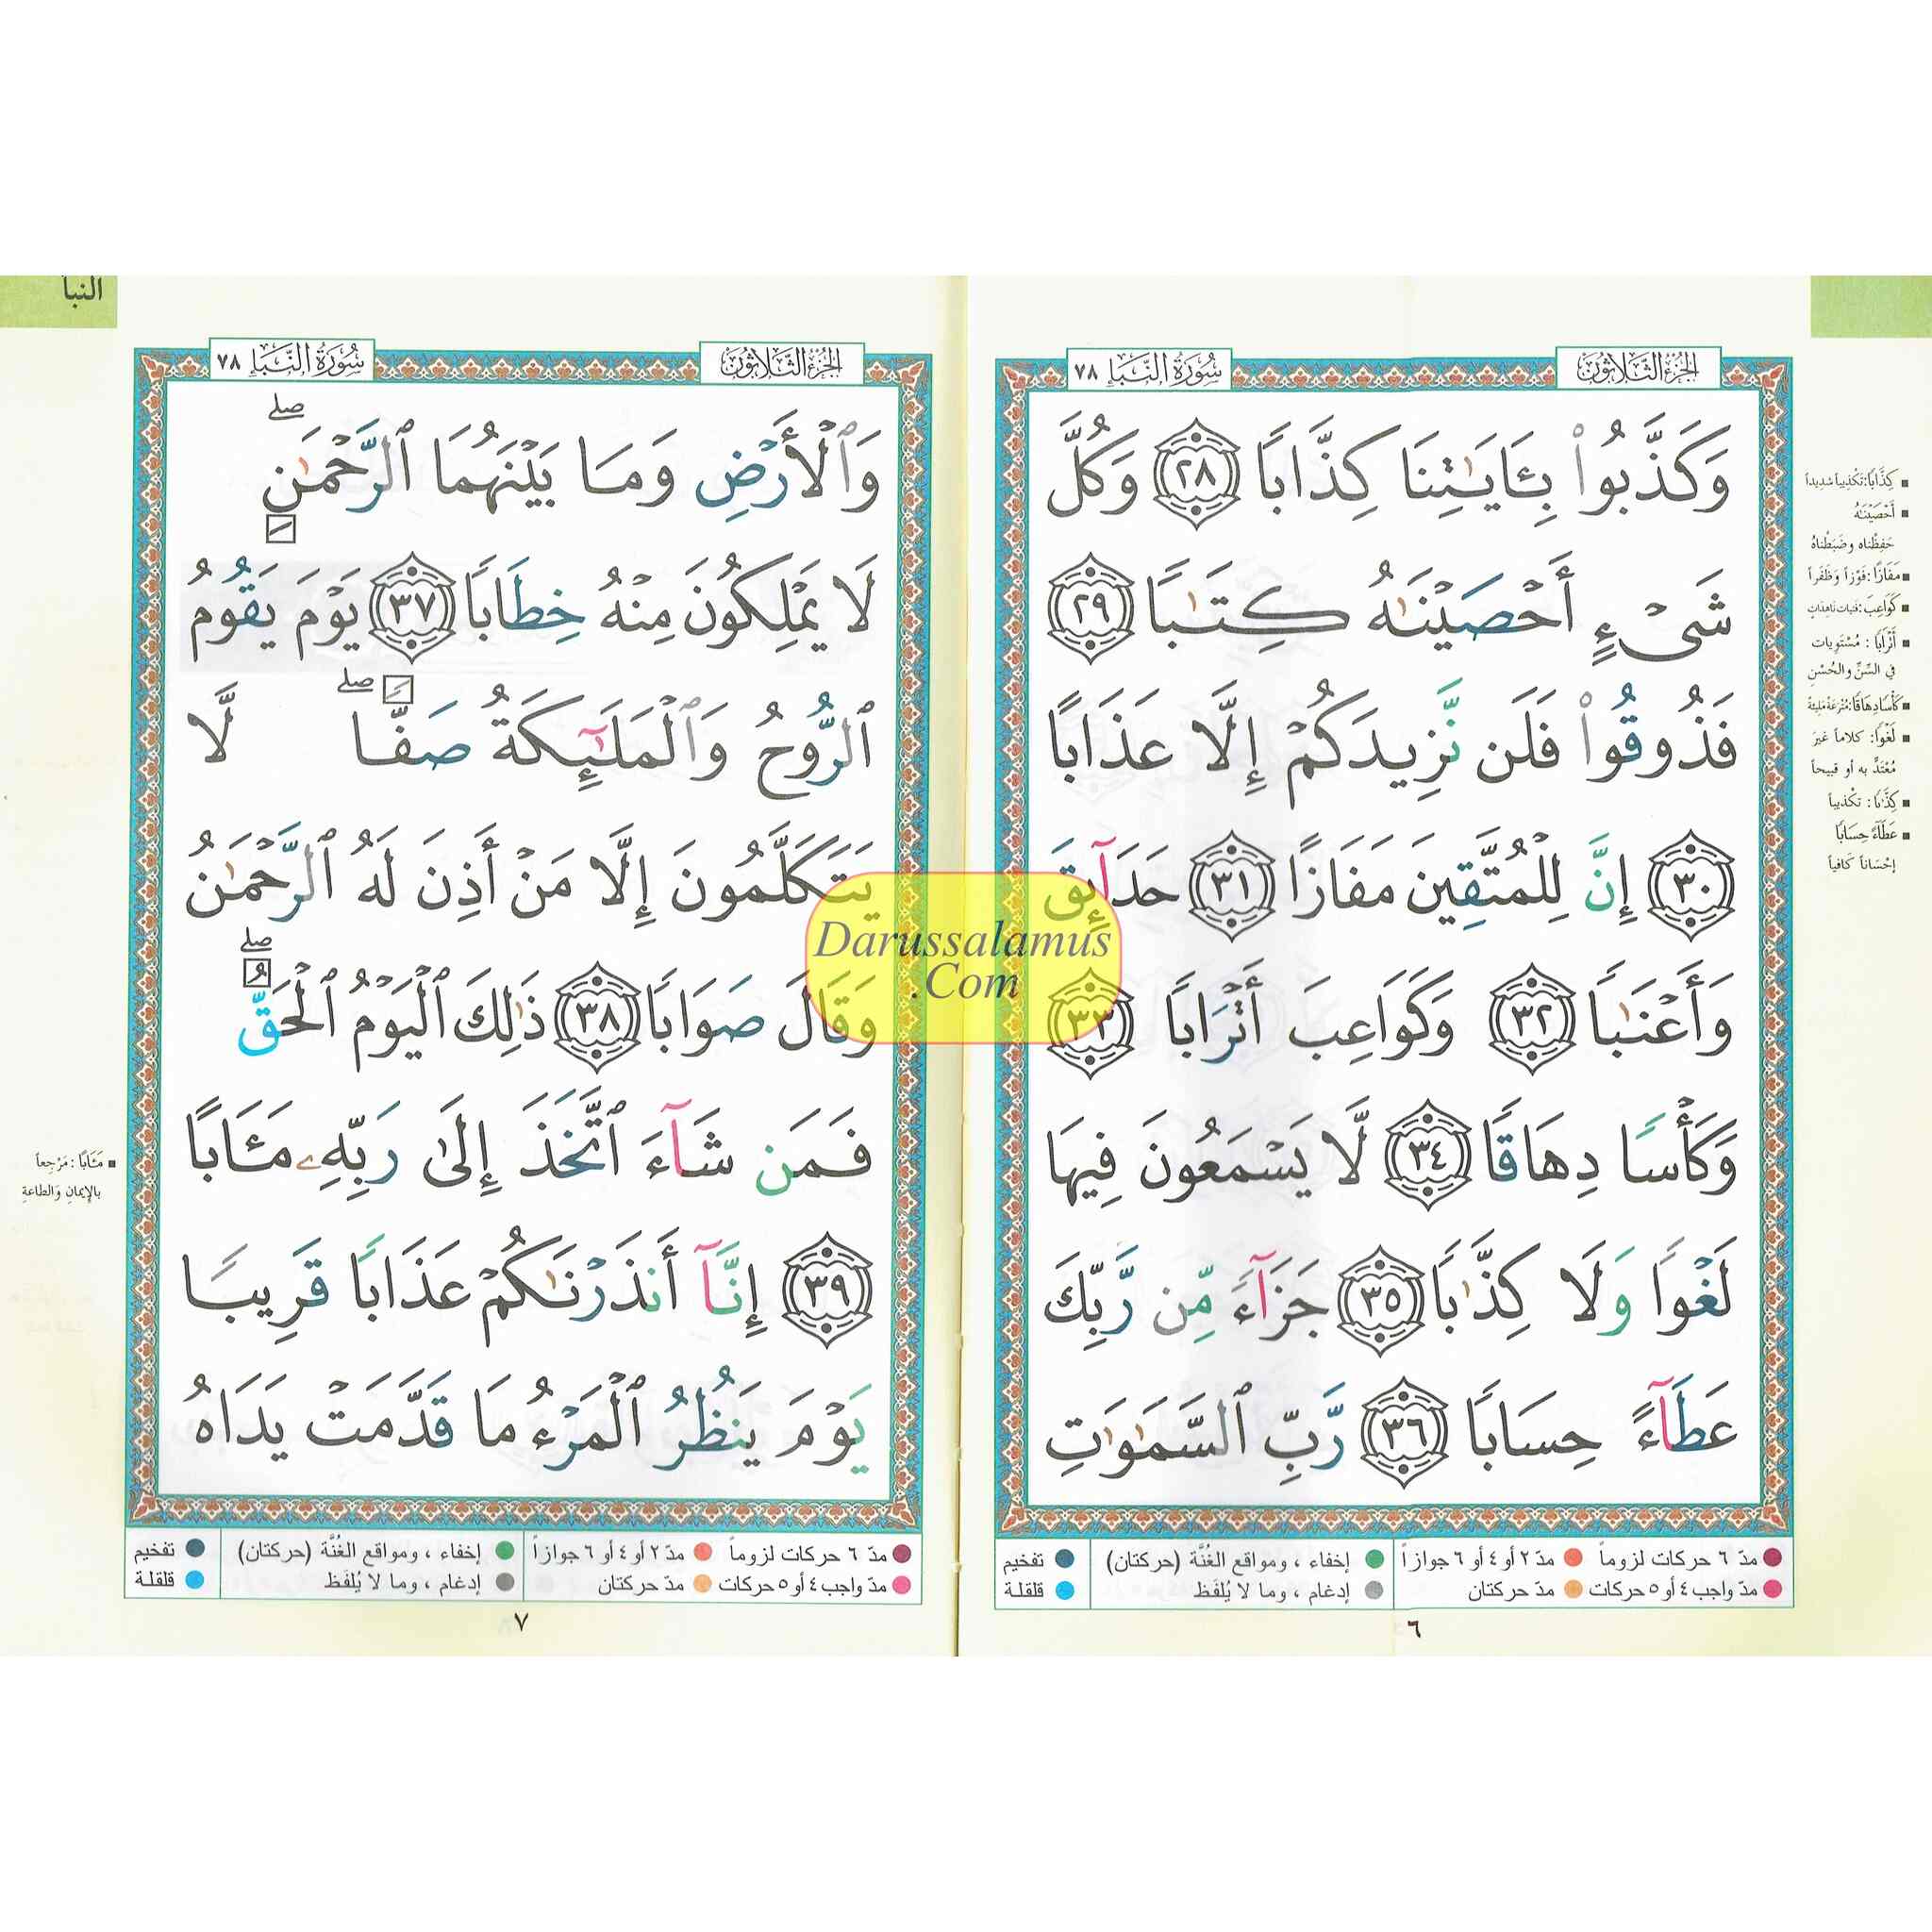 الجزء الثلاثون
سورة النبإ ٧٨
وَكَذَّبُوا۟ بِـَٔايَـٰتِنَا كِذَّابًا ٢٨ وَكُلَّ
شَىْءٍ أَحْصَيْنَـٰهُ كِتَـٰبًا ٢٩
فَذُوقُوا۟ فَلَن نَّزِيدَكُمْ إِلَّا عَذَابًا
٣٠ إِنَّ لِلْمُتَّقِينَ مَفَازًا ٣١ حَدَآئِقَ
وَأَعْنَـٰبًا ٣٢ وَكَوَاعِبَ أَتْرَابًا ٣٣
وَكَأْسًا دِهَاقًا ٣٤ لَّا يَسْمَعُونَ فِيهَا
لَغْوًا وَلَا كِذَّٰبًا ٣٥ جَزَآءً مِّن رَّبِّكَ
عَطَآءً حِسَابًا ٣٦ رَّبِّ ٱلسَّمَـٰوَٰتِ
كِذَّابًا: تكْذيباً شديداً
أَحْصَيْنَـٰهُ
حَفِظْناه وضَبَطْناهُ
مَفَازًا: فَوْزاً وَظَفَراً
كَوَاعِبَ: فتيات ناهدات
أَتْرَابًا: مُسْتَوِيات
في السِّنِّ والحُسْنِ
كَأْسًا دِهَاقًا: مُتْرَعَة مَلِيئة
لَغْوًا: كلاماً غيرَ
مُعْتَدٍّ به أو قبيحاً
كِذَّٰبًا: تكْذيباً
عَطَآءً حِسَابًا
إحْسَاناً كَافياً
مدّ ٦ حركات لزوماً مدّ ٢ أو ٤ أو ٦ جوازاً إخفاء ، ومواقع الغُنَّة (حركتان) تفخيم
مدّ واجب ٤ أو ٥ حركات مدّ حركتان إدغام ، وما لا يُلفَظ قلقلة
٦
النبأ
الجزء الثلاثون
سورة النبإ ٧٨
وَٱلْأَرْضِ وَمَا بَيْنَهُمَا ٱلرَّحْمَـٰنِ ۖ
لَا يَمْلِكُونَ مِنْهُ خِطَابًا ٣٧ يَوْمَ يَقُومُ
ٱلرُّوحُ وَٱلْمَلَـٰٓئِكَةُ صَفًّا ۖ لَّا
يَتَكَلَّمُونَ إِلَّا مَنْ أَذِنَ لَهُ ٱلرَّحْمَـٰنُ
وَقَالَ صَوَابًا ٣٨ ذَٰلِكَ ٱلْيَوْمُ ٱلْحَقُّ ۖ
فَمَن شَآءَ ٱتَّخَذَ إِلَىٰ رَبِّهِۦ مَـَٔابًا
٣٩ إِنَّآ أَنذَرْنَـٰكُمْ عَذَابًا قَرِيبًا
يَوْمَ يَنظُرُ ٱلْمَرْءُ مَا قَدَّمَتْ يَدَاهُ
مَـَٔابًا: مَرْجِعاً
بالإيمانِ وَالطاعةِ
مدّ ٦ حركات لزوماً مدّ ٢ أو ٤ أو ٦ جوازاً إخفاء ، ومواقع الغُنَّة (حركتان) تفخيم
مدّ واجب ٤ أو ٥ حركات مدّ حركتان إدغام ، وما لا يُلفَظ قلقلة
٧
Darussalamus
.Com